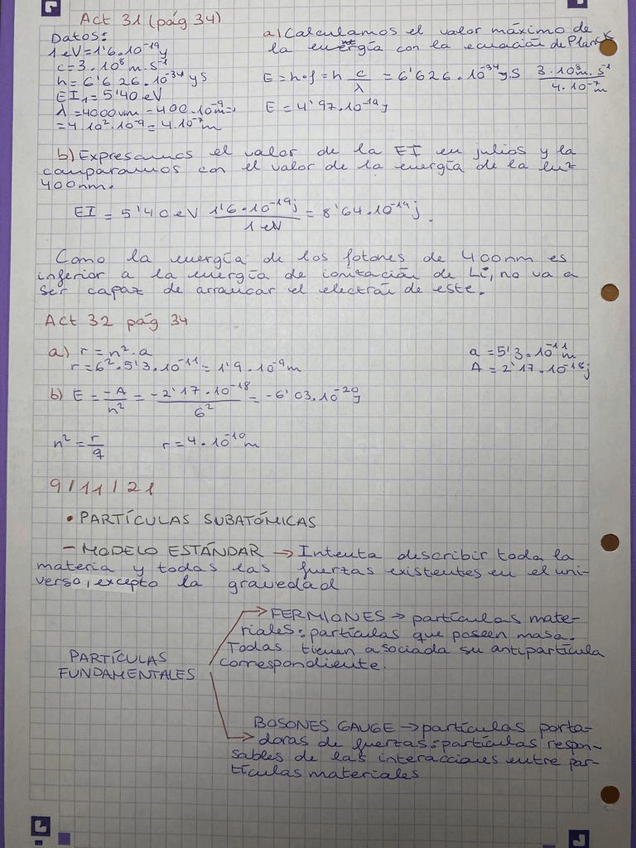 Act 31 (pág 34)
Datos:
1 eV = 1'6 · 10⁻¹⁹ J
c = 3 · 10⁸ m · s⁻¹
h = 6'626 · 10⁻³⁴ JS
EI₁ = 5'40 eV
λ = 400 nm = 400 · 10⁻⁹ m =
= 4 · 10² · 10⁻⁹ = 4 · 10⁻⁷ m
a) Calculamos el valor máximo de
la energía con la ecuación de Planck
E = h · f = h c/λ = 6'626 · 10⁻³⁴ JS 3 · 10⁸ m · s⁻¹ / 4 · 10⁻⁷ m
E = 4'97 · 10⁻¹⁹ J
b) Expresamos el valor de la EI en julios y la
comparamos con el valor de la energía de la luz
400nm.
EI = 5'40 eV 1'6 · 10⁻¹⁹ j / 1 eV = 8'64 · 10⁻¹⁹ j.
Como la energía de los fotones de 400nm es
inferior a la energía de ionización de Li, no va a
ser capaz de arrancar el electrón de este.
Act 32 pág 34
a) r = n² · a
r = 6² · 5'3 · 10⁻¹¹ = 1'9 · 10⁻⁹ m
a = 5'3 · 10⁻¹¹ m
A = 2'17 · 10⁻¹⁸ j
b) E = -A/n² = -2'17 · 10⁻¹⁸ / 6² = -6'03 · 10⁻²⁰ J
n² = r/a r = 4 · 10⁻¹⁰ m
9/11/21
• PARTÍCULAS SUBATÓMICAS
- MODELO ESTÁNDAR → Intenta describir toda la
materia y todas las fuerzas existentes en el uni-
verso, excepto la gravedad
PARTÍCULAS
FUNDAMENTALES
FERMIONES → partículas mate-
riales: partículas que poseen masa.
Todas tienen asociada su antipartícula
correspondiente.
BOSONES GAUGE → partículas porta-
doras de fuerzas: partículas respon-
sables de las interacciones entre par-
tículas materiales